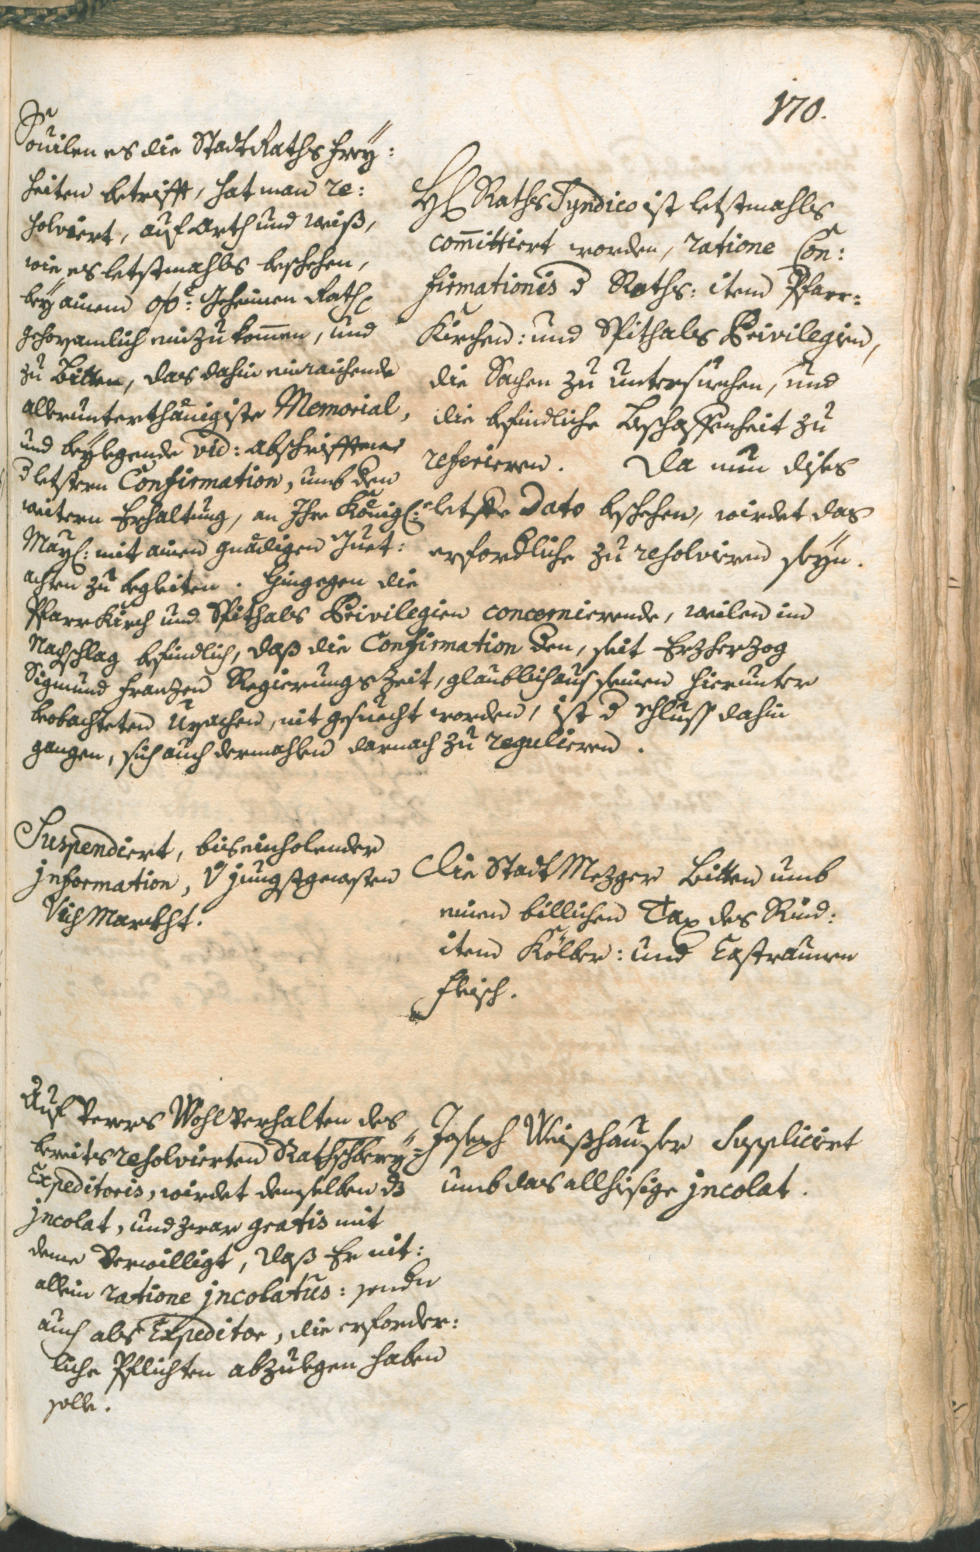 170.
Souilen es die Stadt Raths frey:
heiten betrifft, hat man re:
solviert, auf Arth und weiß,
wie es letstmahls beschehen,
bey ainem Geheimen Rath
gehorsamlich einzukommen, und
zu bitten, das dahin einraichende
allerunterthänigiste Memorial,
und beylegende vid: abschrifften
d letstern Confirmation, umb den
weitern Erhaltung, an Ihro Königl:
May: mit ainen gnädigen Guet:
achten zu begleiten. Hingegen die
Pfarr Kirch und Spithals Privilegien concernierende, weilen im
Nachschlag befindlich, daß die Confirmation den, seit Erzherzog
Sigmund Franzen Regierungs Zeit, glaublich aus seinen hierunter
beobachteten Ursachen, nit gesuecht worden, ist d schluss dahin
gangen, sich auch dermahlen darnach zu regulieren.
H Raths Syndico ist letstmahls
committiert worden, ratione Con:
firmationis d Raths: item Pfarr:
Kirchen: und Spithals Privilegien,
die Sachen zu untersuechen, und
die befindliche Beschaffenheit zu
referieren. Da nun dises
letste Dato beschehen, wirdet das
erfordliche zu resolvieren seyn.
Suspendiert, bis einholender
information, jüngstgewesten
Vich Marckht.
Die Stadt Mezger bitten umb
einen billichen Tax des Rind:
item Kölber: und Castraunen
fleisch.
Auf ferers Wohlverhalten des
bereits resolvierten Rathschbery
Expeditoris, wirdet demselben ds
jncolat, und zwar gratis mit
deme verwilligt, daß Er nit:
allein ratione jncolatus: sondn
auch als Expeditor, die erforder:
liche Pflichten abzulegen haben
solle.
Joseph Weißhauser Suppliciert
umb das allhisige jncolat.